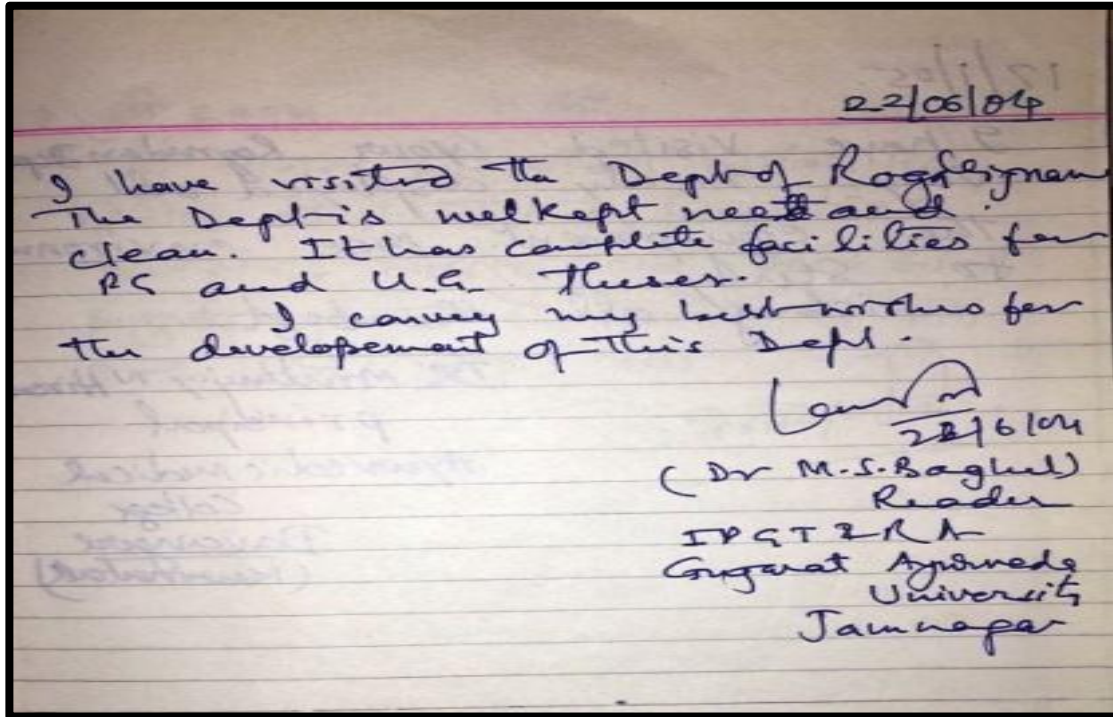 22/06/04
I have visited the Dept of Rog
The Dept is wel kept neat and
clean. It has complete facilities for
PG and U.G. Theses.
I convey my best wishes for
the developement of this Dept.
22/6/04
(Dr M.S. Baghel)
Reader
IPGT & RA
Gujarat Ayurveda
University
Jamnagar